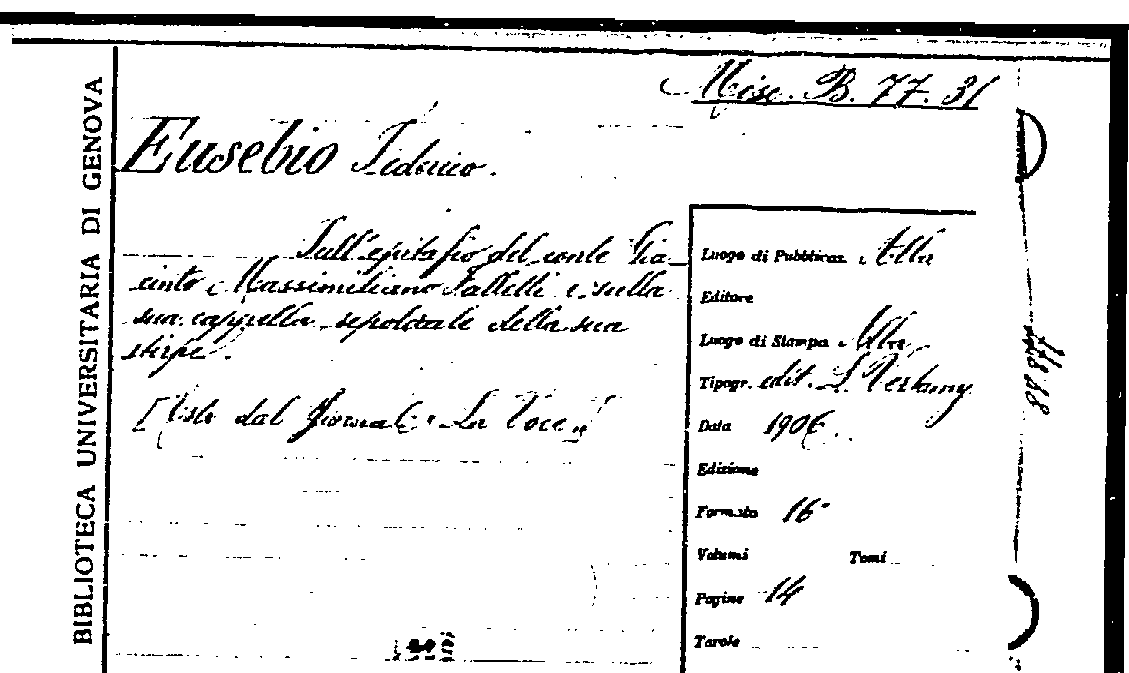 BIBLIOTECA UNIVERSITARIA DI GENOVA
Misc. B. 77. 31
Eusebio Federico.
Sull'epitafio del conte Gia
cinto Massimiliano Falletti e sulla
sua cappella sepolcrale della sua
stirpe.
[Estr. dal Giornale "La Voce"]
Luogo di Pubblicaz. Alba
Editore
Luogo di Stampa Alba
Tipogr. edit. L. Vertamy
Data 1906.
Edizione
Formato 16°
Volumi Tomi
Pagine 14
Tavole